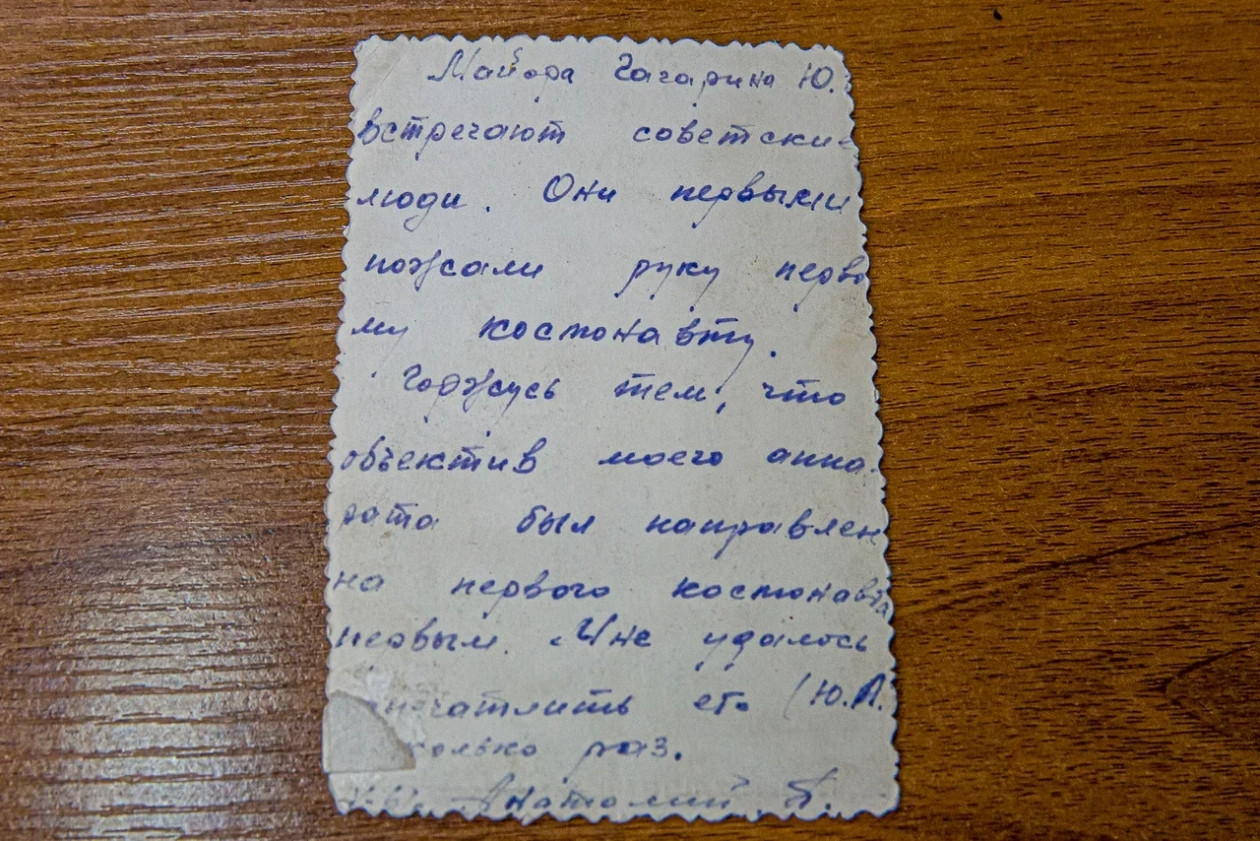 Майора Гагарина Ю.
встречают советские
люди. Они первыми
пожали руку перво
му космонавту.
Горжусь тем, что
объектив моего аппа-
рата был направлен
на первого космонавта
первым. Мне удалось
печатлить его (Ю.А.
колько раз.
Анатолий Б.